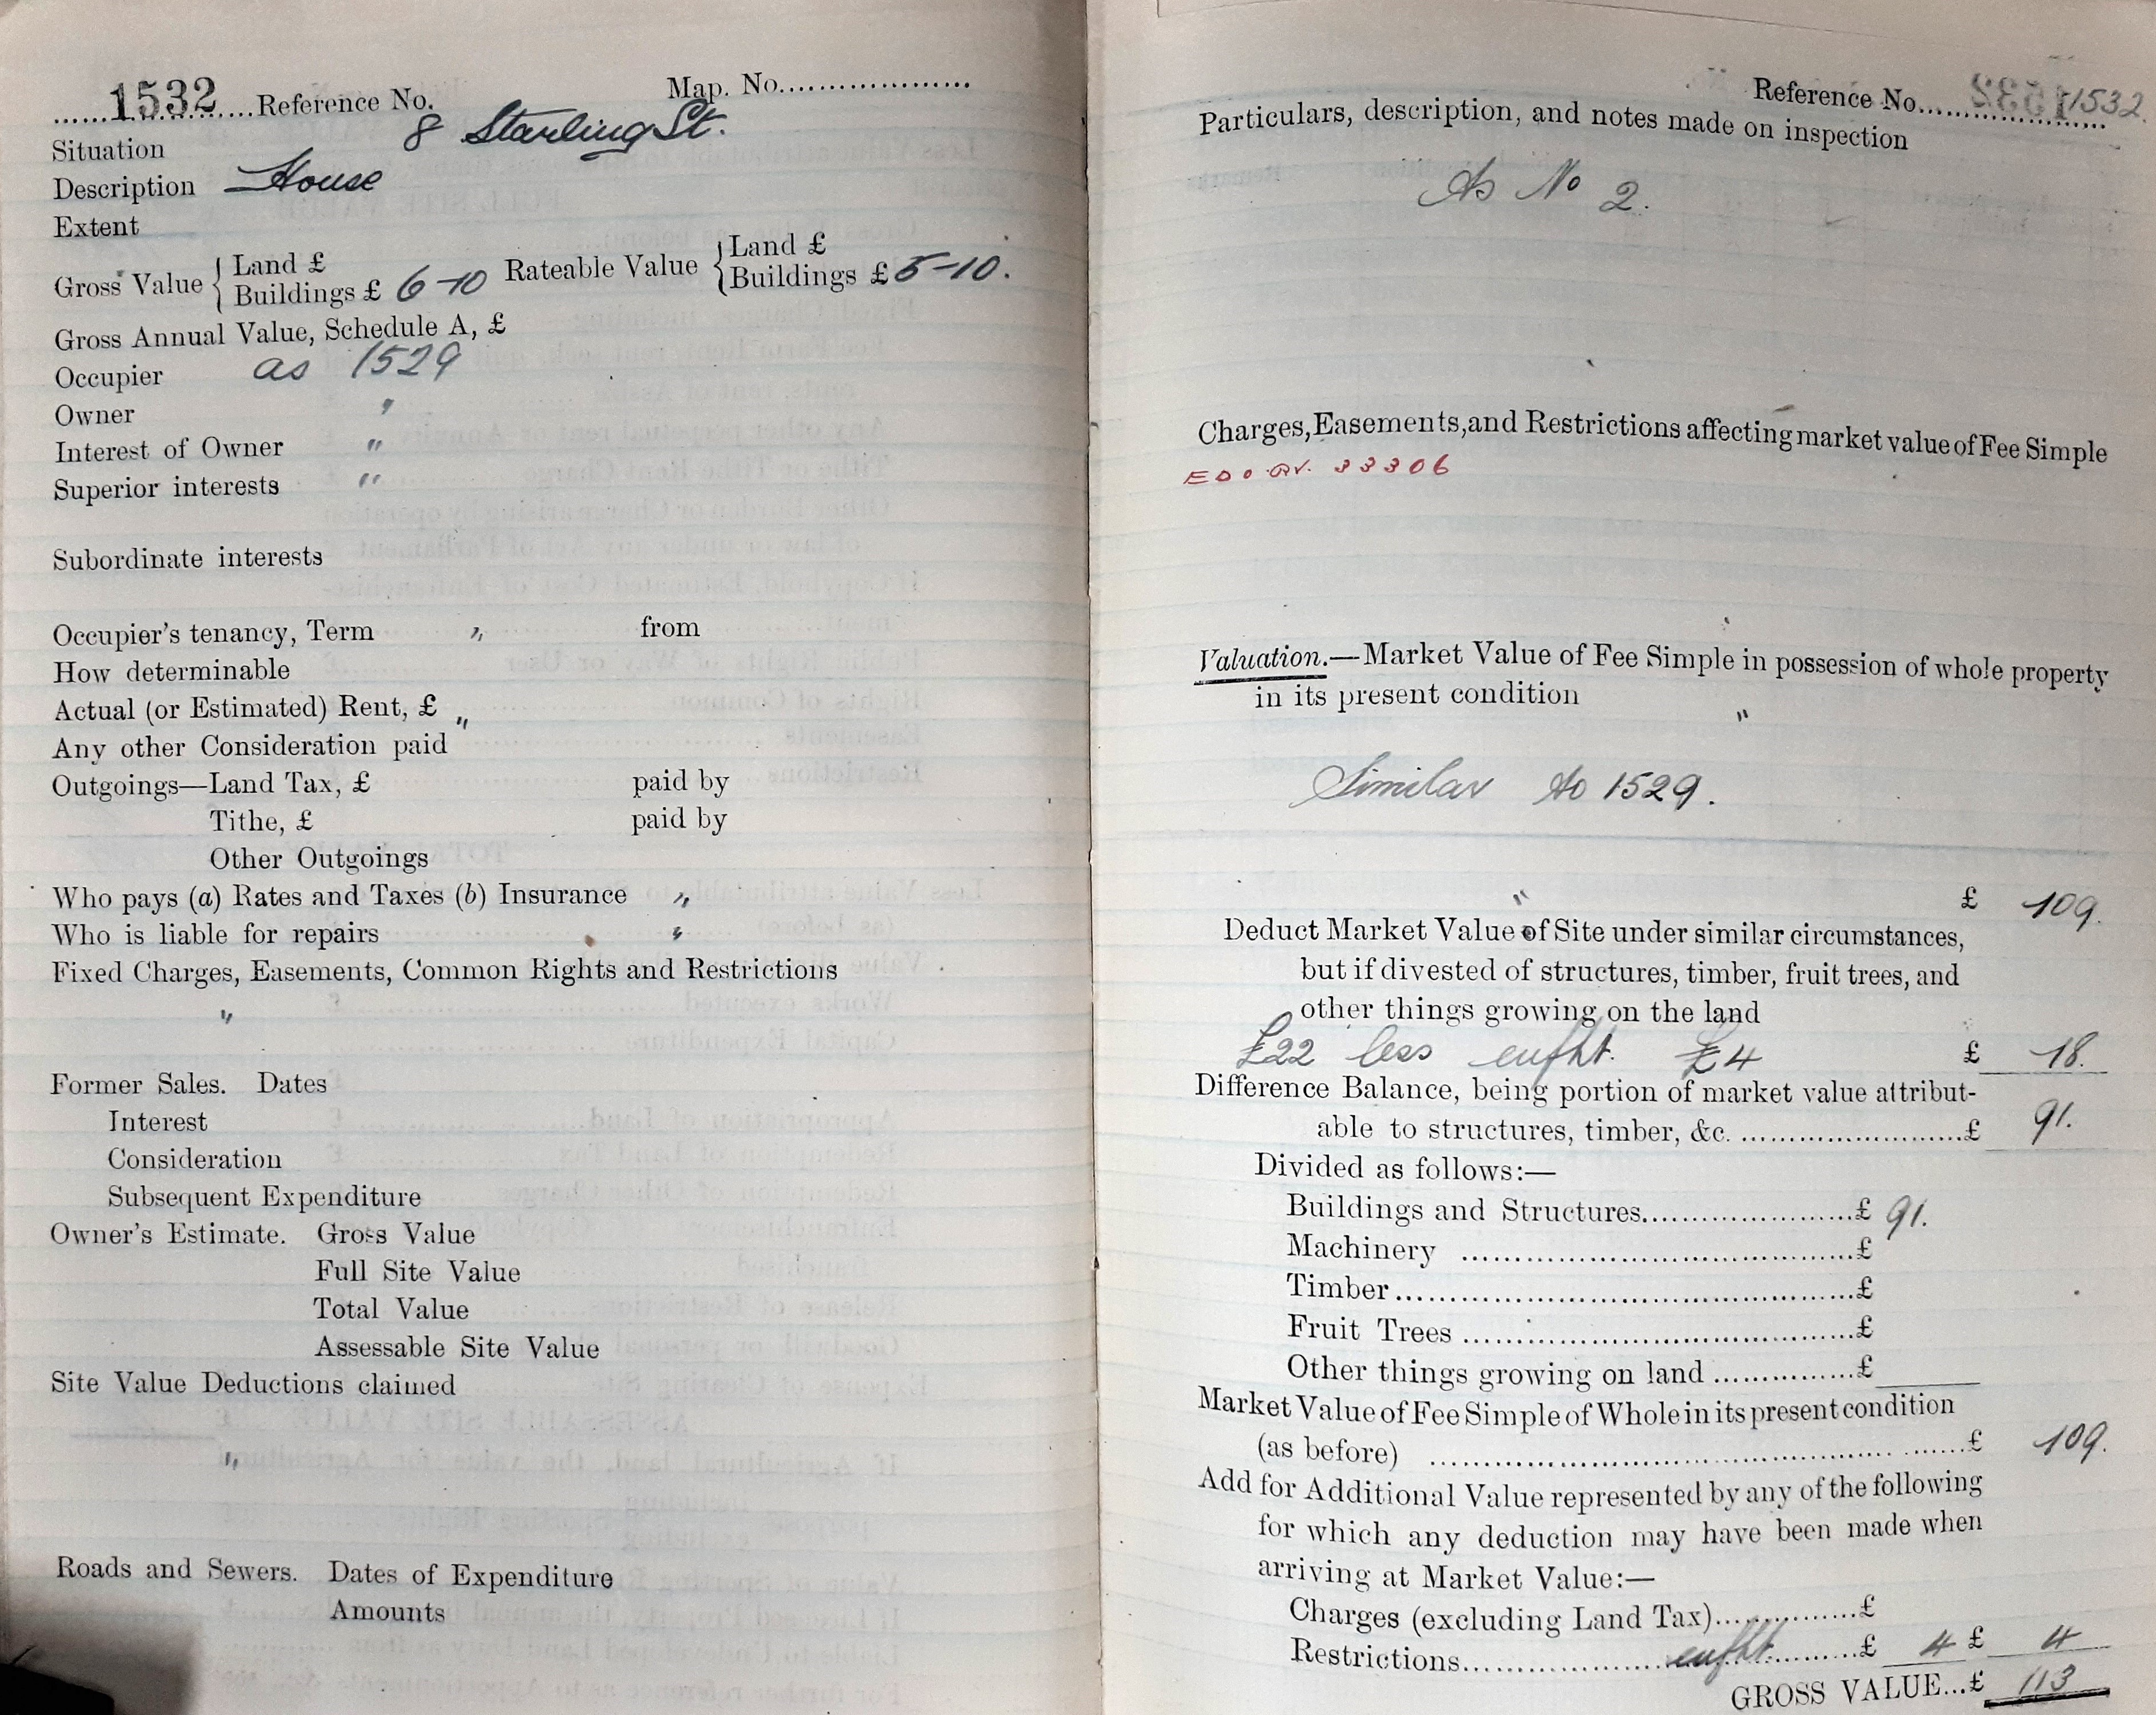 1532 Reference No. Map. No.
Situation 8 Starling St.
Description House
Extent
Gross Value { Land £
Buildings £ 6-10 Rateable Value { Land £
Buildings £ 5-10.
Gross Annual Value, Schedule A, £
Occupier as 1529
Owner "
Interest of Owner "
Superior interests "
Subordinate interests
Occupier's tenancy, Term " from
How determinable
Actual (or Estimated) Rent, £ "
Any other Consideration paid
Outgoings—Land Tax, £ paid by
Tithe, £ paid by
Other Outgoings
Who pays (a) Rates and Taxes (b) Insurance "
Who is liable for repairs "
Fixed Charges, Easements, Common Rights and Restrictions
"
Former Sales. Dates
Interest
Consideration
Subsequent Expenditure
Owner's Estimate. Gross Value
Full Site Value
Total Value
Assessable Site Value
Site Value Deductions claimed
"
Roads and Sewers. Dates of Expenditure
Amounts
Reference No. 1532
Particulars, description, and notes made on inspection
As No 2.
Charges, Easements, and Restrictions affecting market value of Fee Simple
33306
Valuation.—Market Value of Fee Simple in possession of whole property
in its present condition
"
Similar to 1529.
" £ 109.
Deduct Market Value of Site under similar circumstances,
but if divested of structures, timber, fruit trees, and
other things growing on the land
£22 less £4 £ 18.
Difference Balance, being portion of market value attribut-
able to structures, timber, &c. £ 91.
Divided as follows:—
Buildings and Structures £ 91.
Machinery £
Timber £
Fruit Trees £
Other things growing on land £
Market Value of Fee Simple of Whole in its present condition
(as before) £ 109.
Add for Additional Value represented by any of the following
for which any deduction may have been made when
arriving at Market Value:—
Charges (excluding Land Tax) £
Restrictions £ 4 £ 4
GROSS VALUE...£ 113